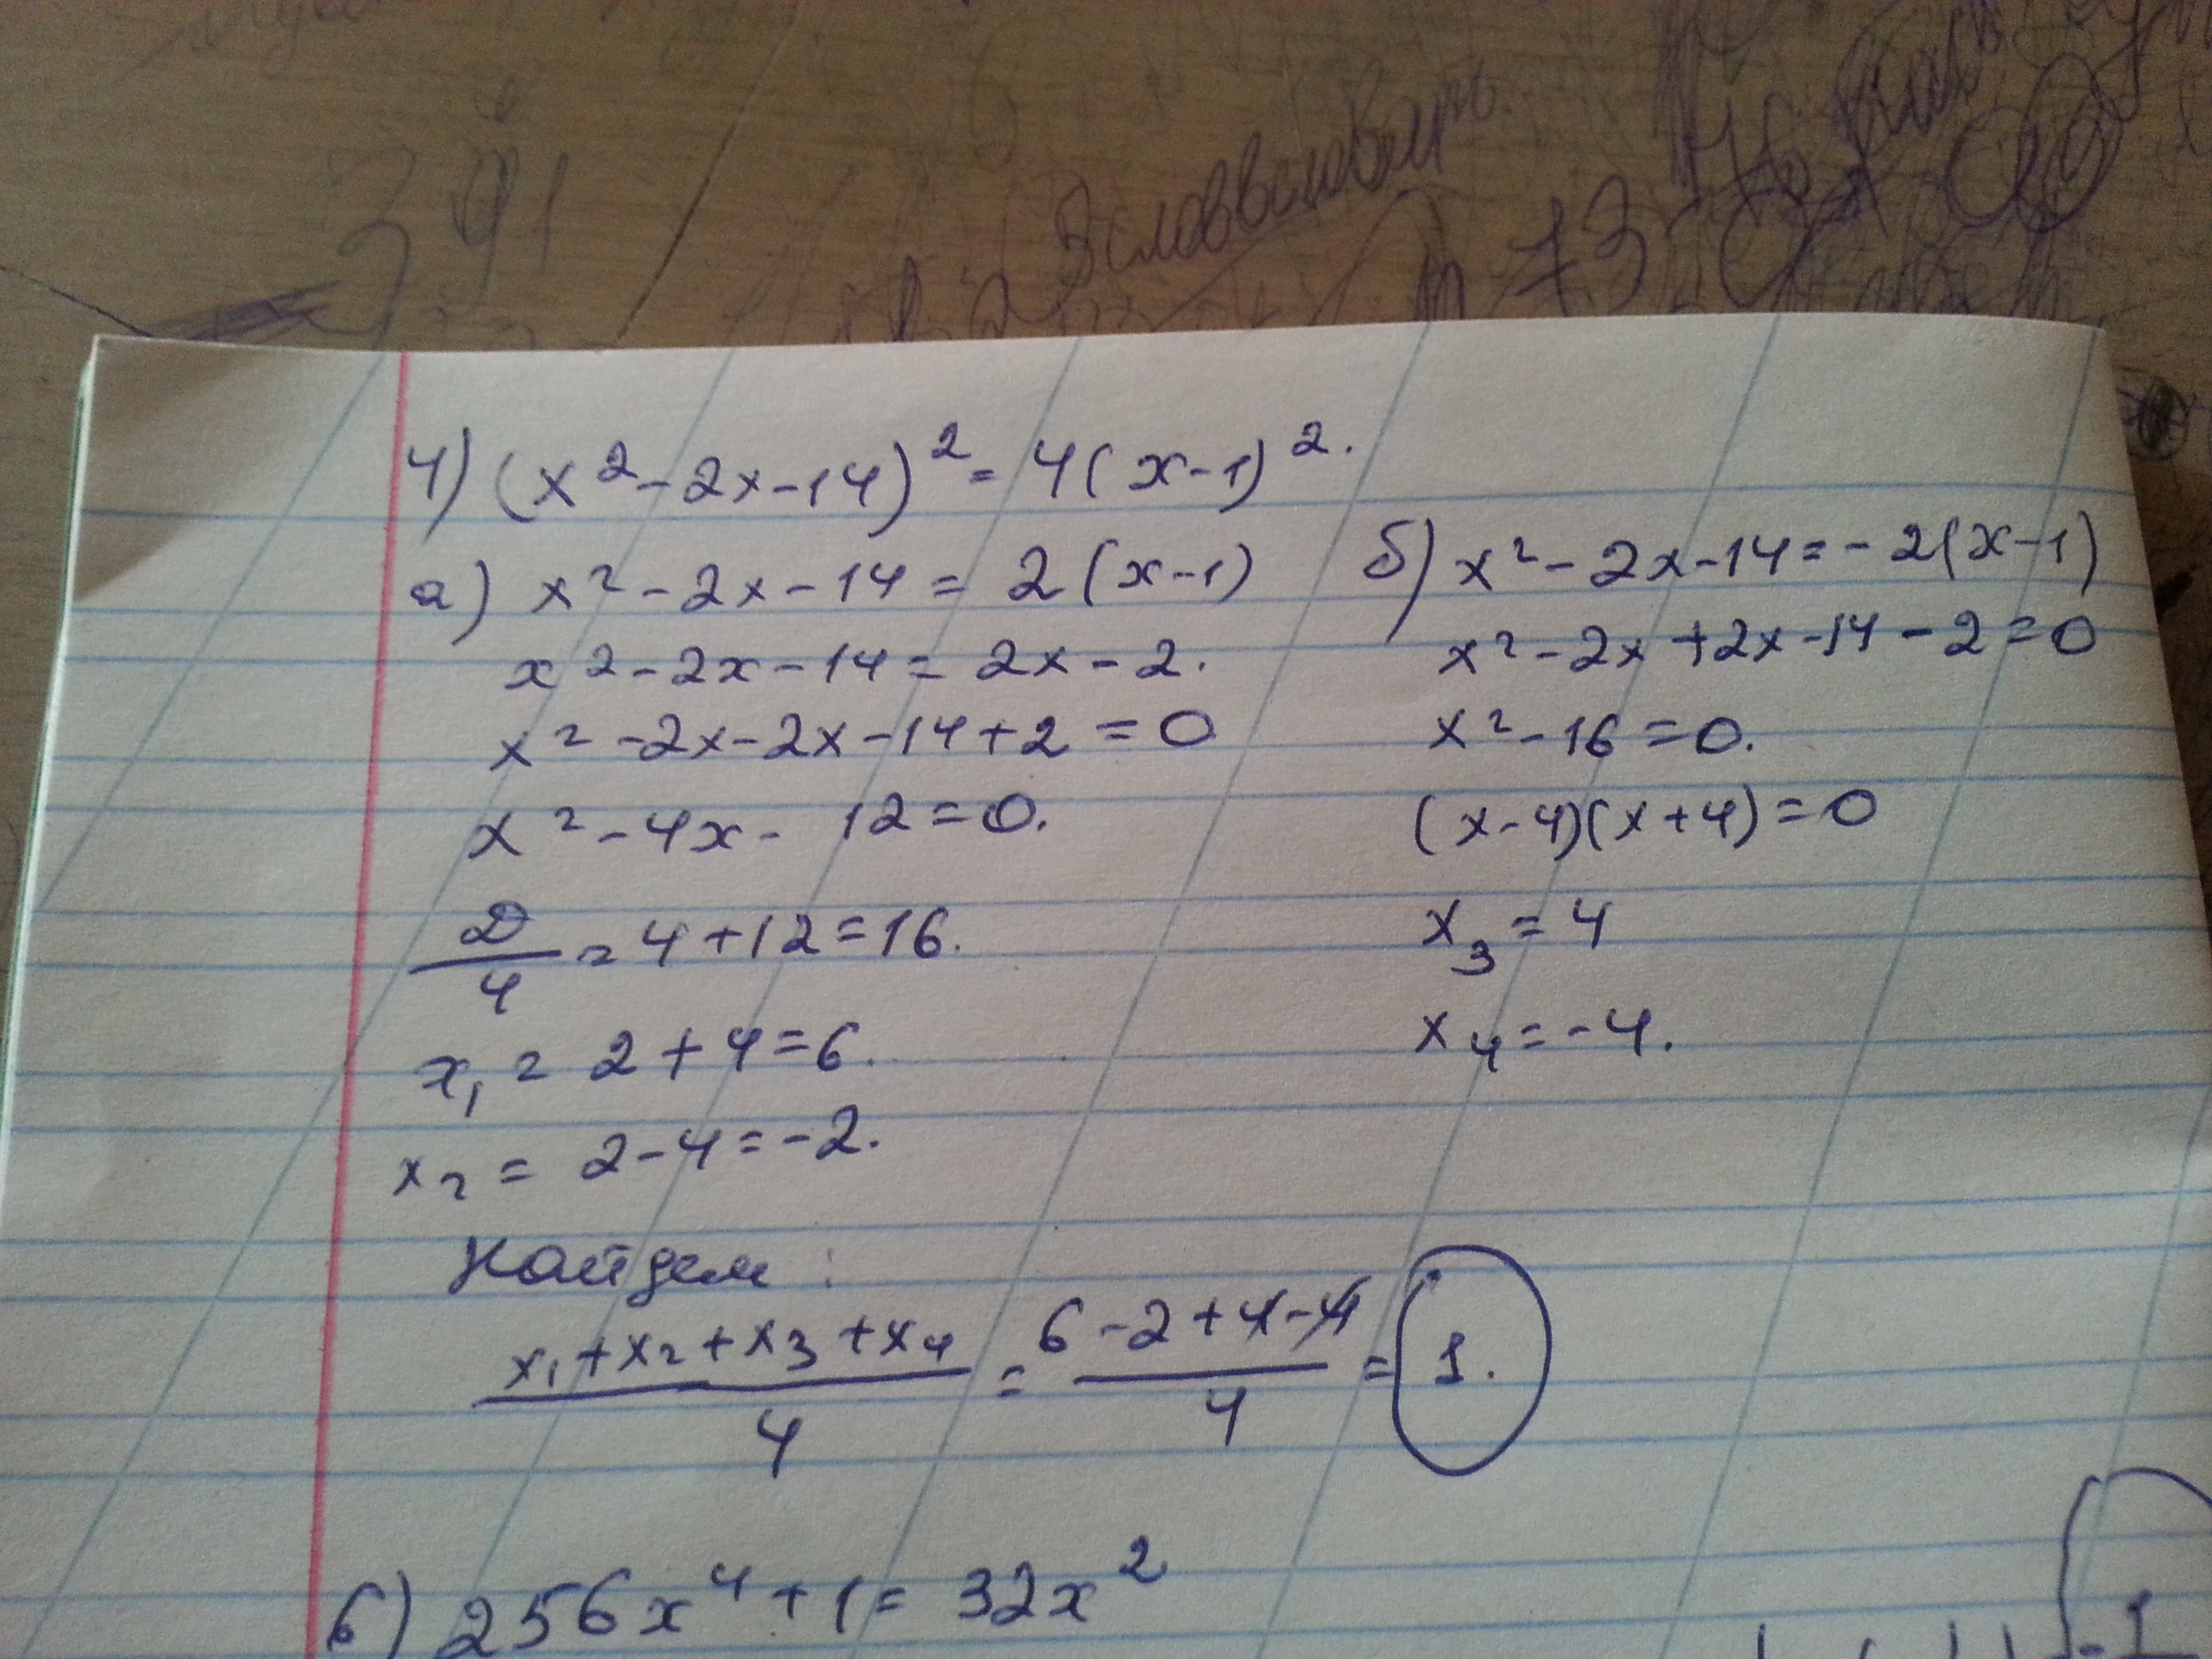 391
В словвсновом
13
4) (x² - 2x - 14)² = 4(x-1)².
а) x² - 2x - 14 = 2(x-1)
x² - 2x - 14 = 2x - 2.
x² - 2x - 2x - 14 + 2 = 0
x² - 4x - 12 = 0.
D/4 = 4 + 12 = 16.
x₁ = 2 + 4 = 6.
x₂ = 2 - 4 = -2.
б) x² - 2x - 14 = -2(x-1)
x² - 2x + 2x - 14 - 2 = 0
x² - 16 = 0.
(x-4)(x+4) = 0
x₃ = 4
x₄ = -4.
Найдем:
(x₁ + x₂ + x₃ + x₄)/4 = (6 - 2 + 4 - 4)/4 = 1.
6) 256x⁴ + 1 = 32x²